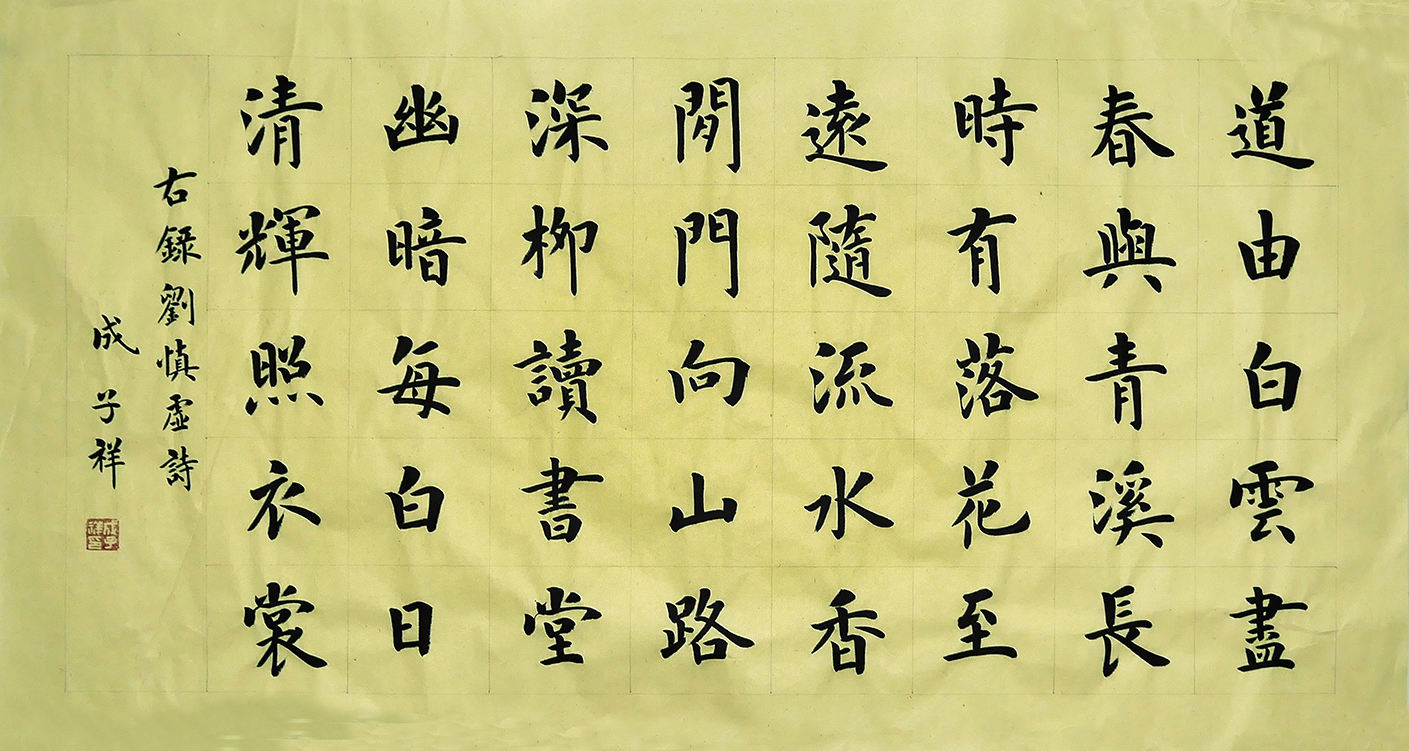 道由白雲盡
春與青溪長
時有落花至
遠隨流水香
閒門向山路
深柳讀書堂
幽暗每白日
清輝照衣裳
右錄劉慎虛詩
成子祥
成子祥印